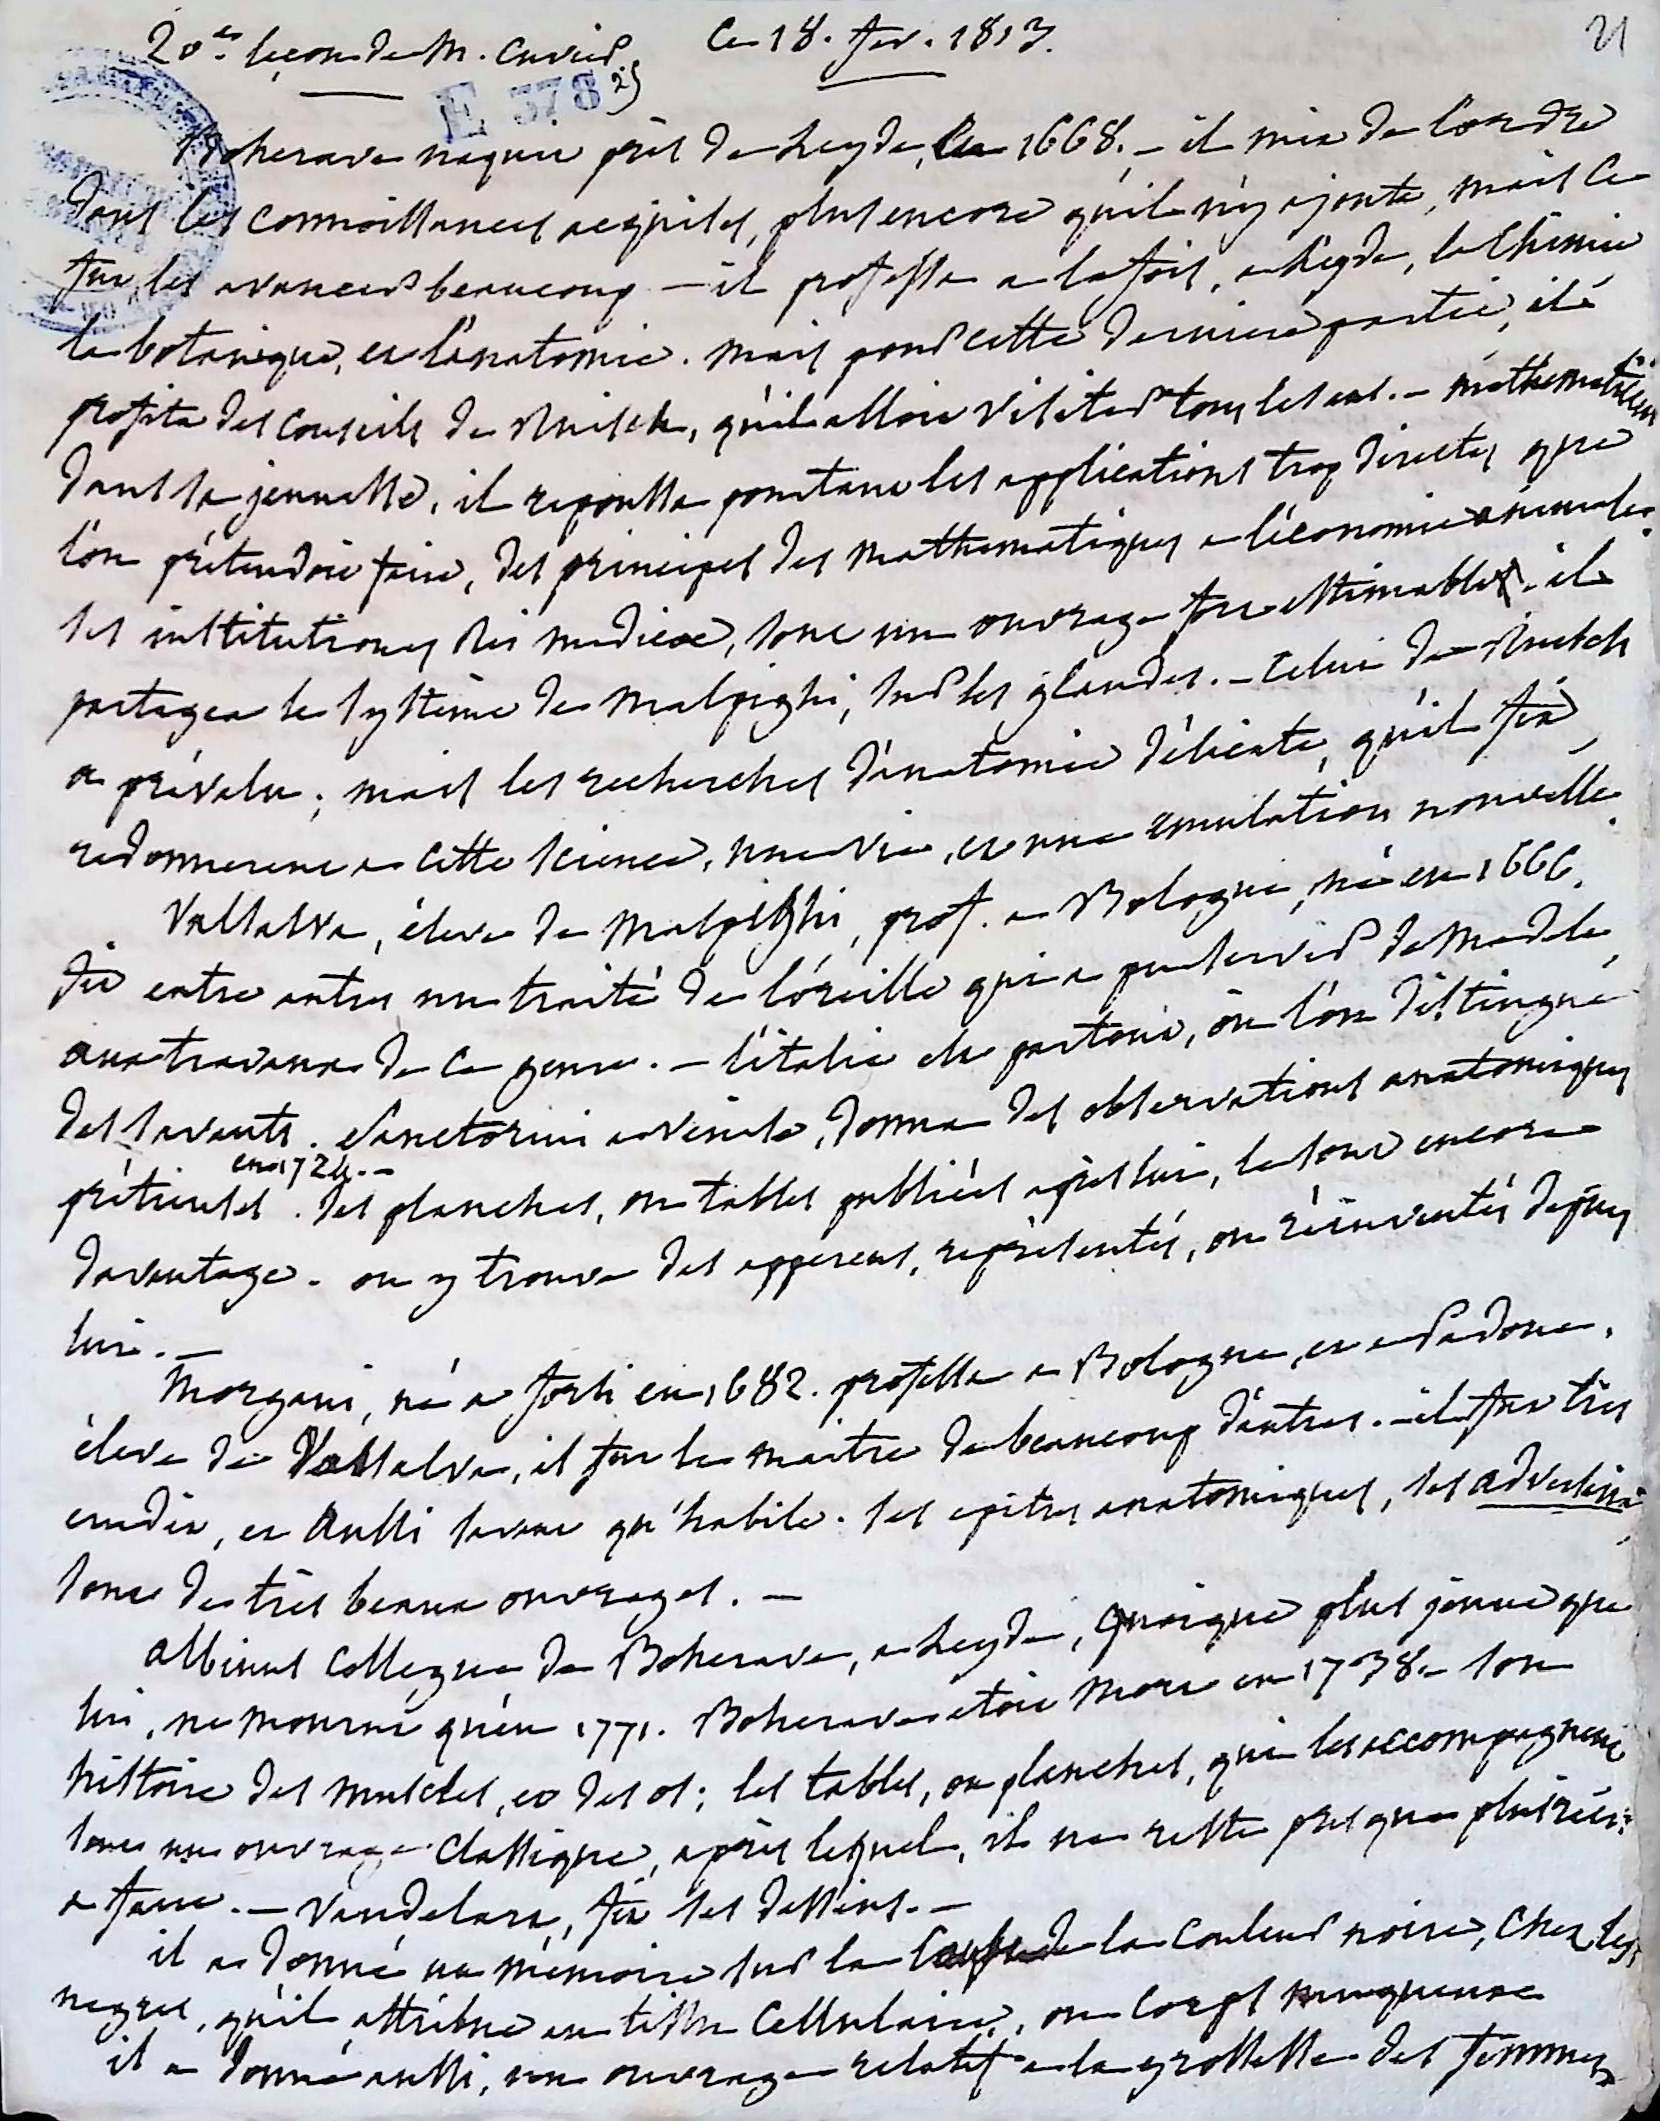 20e. leçon de M. Cuvier. Ce 18. fev. 1813. 21
E 378 25
Boherave naquit près de Leyde, en 1668. – il mit de l'ordre
dans les connoissances acquises, plus encore qu'il n'y ajouta, mais ce
fut les avancer beaucoup – il professa a la fois, a Leyde, la Chimie
la botanique, et l'anatomie. mais pour cette derniere partie, il
profita des conseils de Ruisch, qu'il alloit visiter tous les ans. – mathematicien
dans sa jeunesse, il repoussa pourtant les applications trop directes que
l'on prétendoit faire, des principes des mathematiques a l'économie animale.
ses institutiones rei medicae, sont un ouvrage fort estimable. il
partagea le système de Malpighi, sur les glandes. – celui de Ruisch
a prévalu; mais les recherches d'anatomie délicate, qu'il fit,
redonnerent a cette science, une vie, et une émulation nouvelle.
Valsalva, éleve de Malpighi, prof. a Bologne, né en 1666.
fit entre autres un traité de l'oreille qui a pu servir de modele,
aux travaux de ce genre. – l'italie est partout, où l'on distingue
des savants. Sanctorini a venise, donna des observations anatomiques
en 1724. –
prétieuses. des planches, ou tables publiées après lui, le sont encore
davantage. on y trouve des apperçus, représentés, ou réinventés depuis
lui. –
Morgani, né a forli en 1682. professa a Bologne, et a Padoue.
éleve de Valsalva, il fut le maitre de beaucoup d'autres. – il fut très
erudit, et aussi savant qu'habile. ses epitres anatomiques, ses adversaria,
sont de très beaux ouvrages. –
Albinus collegue de Boherave, a Leyde, quoique plus jeune que
lui, ne mourut qu'en 1771. Boherave etoit mort en 1738 – son
histoire des muscles, et des os; les tables, ou planches, qui les accompagnent
sont un ouvrage classique, après lequel, il ne reste presque plus rien
a faire. – Vandelaar, fit ses dessins. –
il a donné un mémoire sur la cause de la couleur noire, chez les
negres, qu'il attribue au tissu cellulaire, ou corps muqueux
il a donné aussi, un ouvrage relatif a la grossesse des femmes